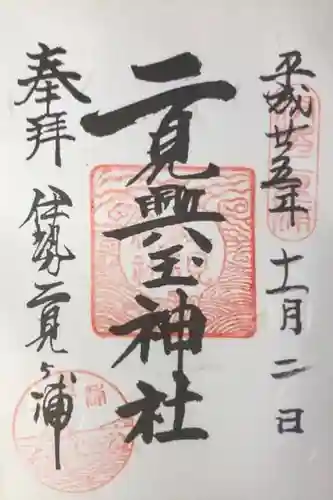 平成廿五年十一月二日
二見興玉神社
奉拝 伊勢二見ヶ浦